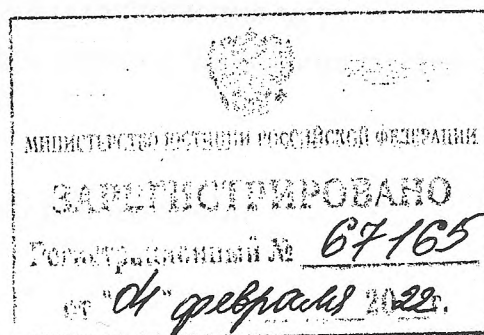 МИНИСТЕРСТВО ЮСТИЦИИ РОССИЙСКОЙ ФЕДЕРАЦИИ
ЗАРЕГИСТРИРОВАНО
Регистрационный № 67165
от "01" февраля 2022г.